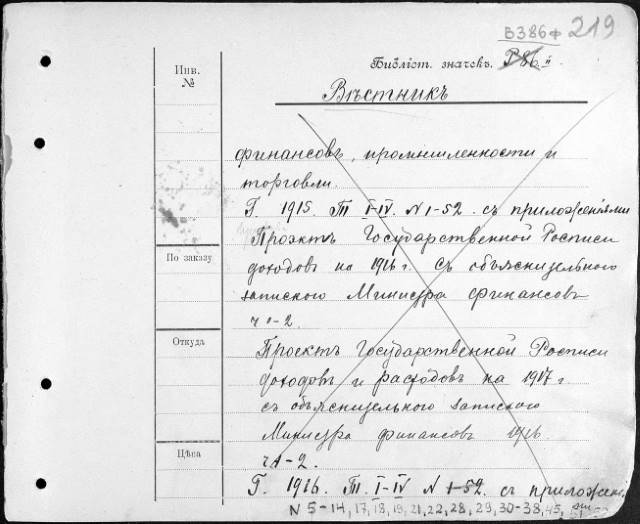 В386ф 219
Инв.
№
Библіот. значекъ. Р86 II
Вѣстникъ
финансовъ, промышленности и
торговли.
Г. 1915. Т.Т. I-IV. N 1-52. съ приложеніями
По заказу
Проэктъ Государственной Росписи
доходовъ на 1916 г. съ объяснительного
запискою Министра финансовъ
ч 1-2.
Откуда
Проектъ Государственной Росписи
доходовъ и расходовъ на 1917 г.
съ объяснительного запискою
Министра финансовъ 1916.
Цѣна
ч 1-2.
Г. 1916. Т.Т. I-IV N 1-52. съ приложені
N 5-14, 17, 18, 19, 21, 22, 28, 29, 30-38, 45,